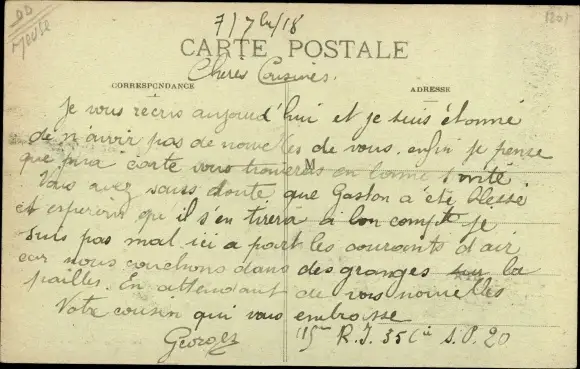 DD
Meuse
7/7bre/18
1201
CARTE POSTALE
Chères Cousines.
CORRESPONDANCE
ADRESSE
Je vous récris aujourd'hui et je suis étonné
de n'avoir pas de nouvelles de vous. enfin je pense
que ma carte vous trouvera en bonne santé.
M
Vous avez sans doute que Gaston a été blessé
et esperons qu'il s'en tirera à bon compte je
suis pas mal ici a part les courants d'air
car nous couchons dans des granges sur la
paille. En attendant de vos nouvelles
Votre cousin qui vous embrasse
Georges 115em R.I. 35 Cie S.P. 20